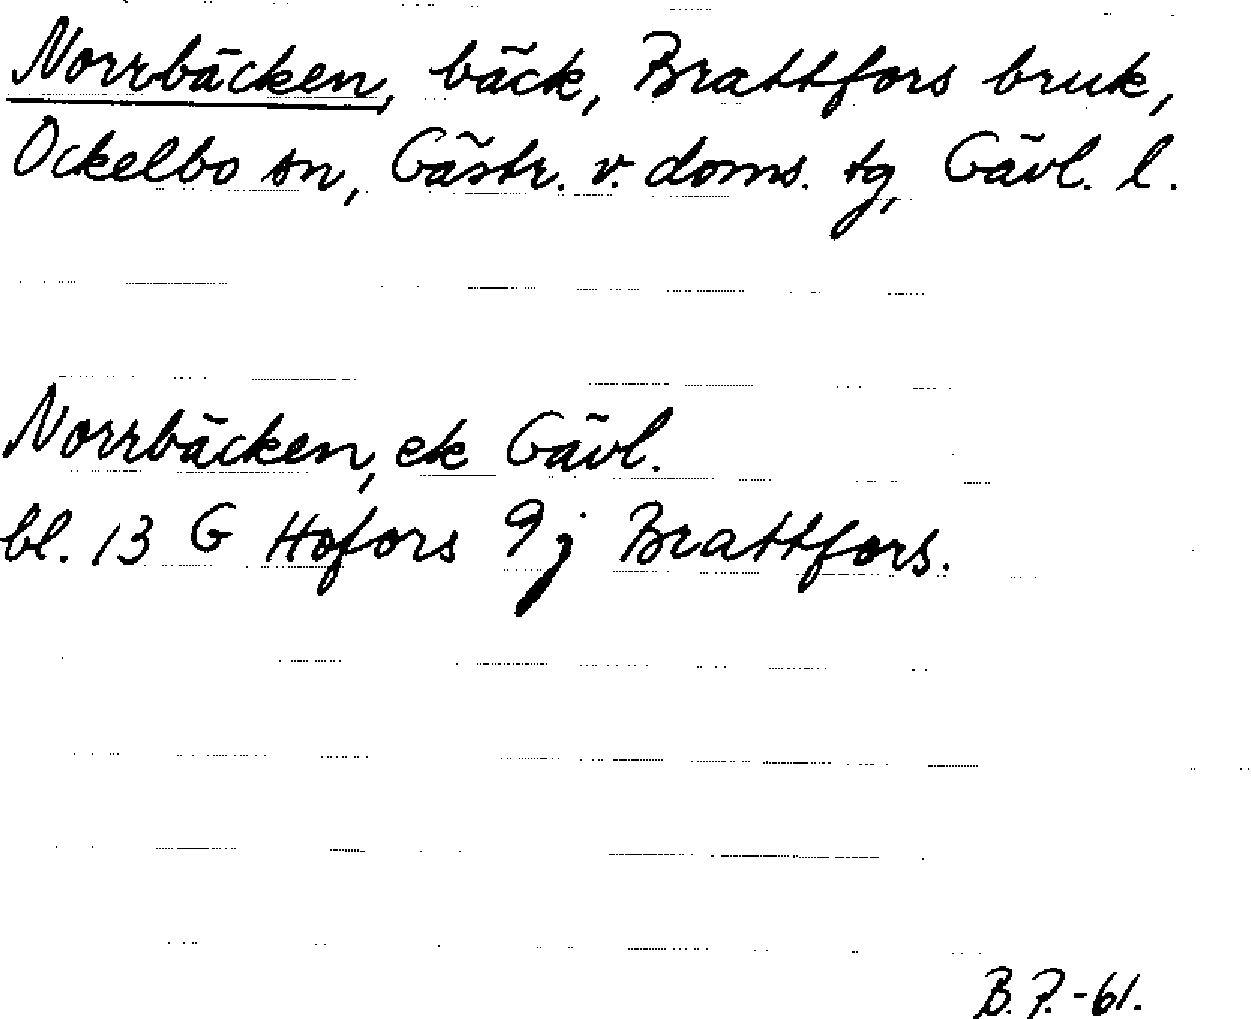 Norrbäcken, bäck, Brattfors bruk,
Ockelbo sn, Gästr. v. doms. tg, Gävl. l.
Norrbäcken, ek Gävl.
bl. 13 G Hofors 9j Brattfors.
B. P. -61.